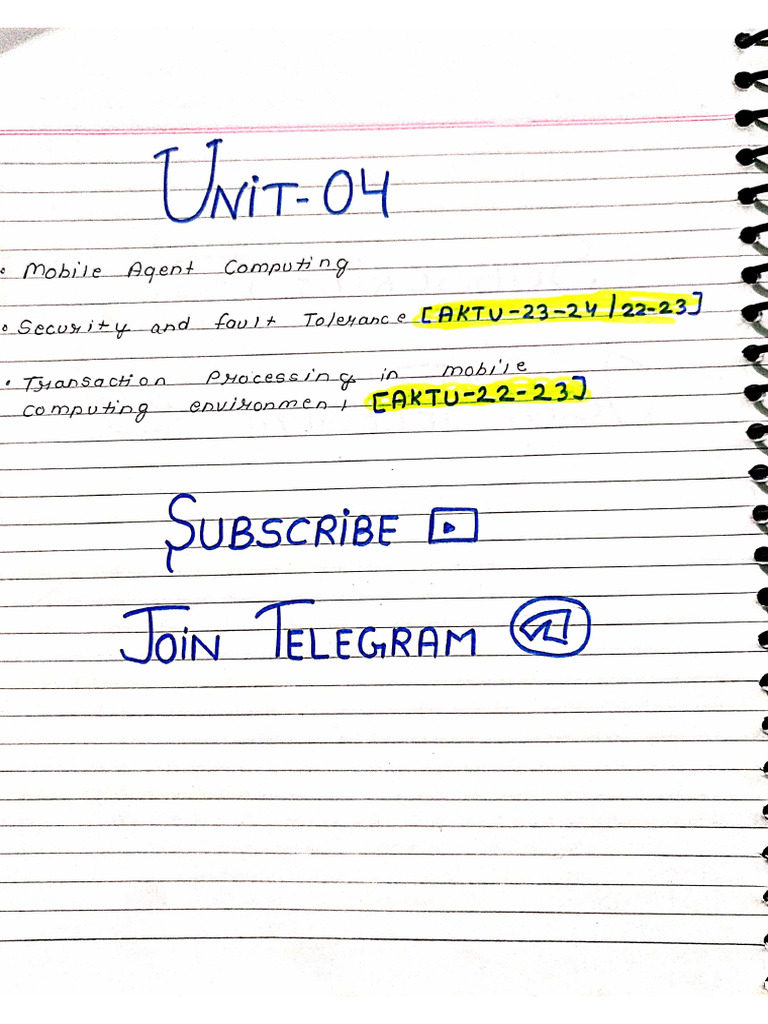 UNiT-04
• Mobile Agent Computing
• Security and fault Tolerance [AKTU-23-24/22-23]
• Transaction Processing in mobile
computing environment [AKTU-22-23]
SUBSCRiBE
JOiN TELEGRAM